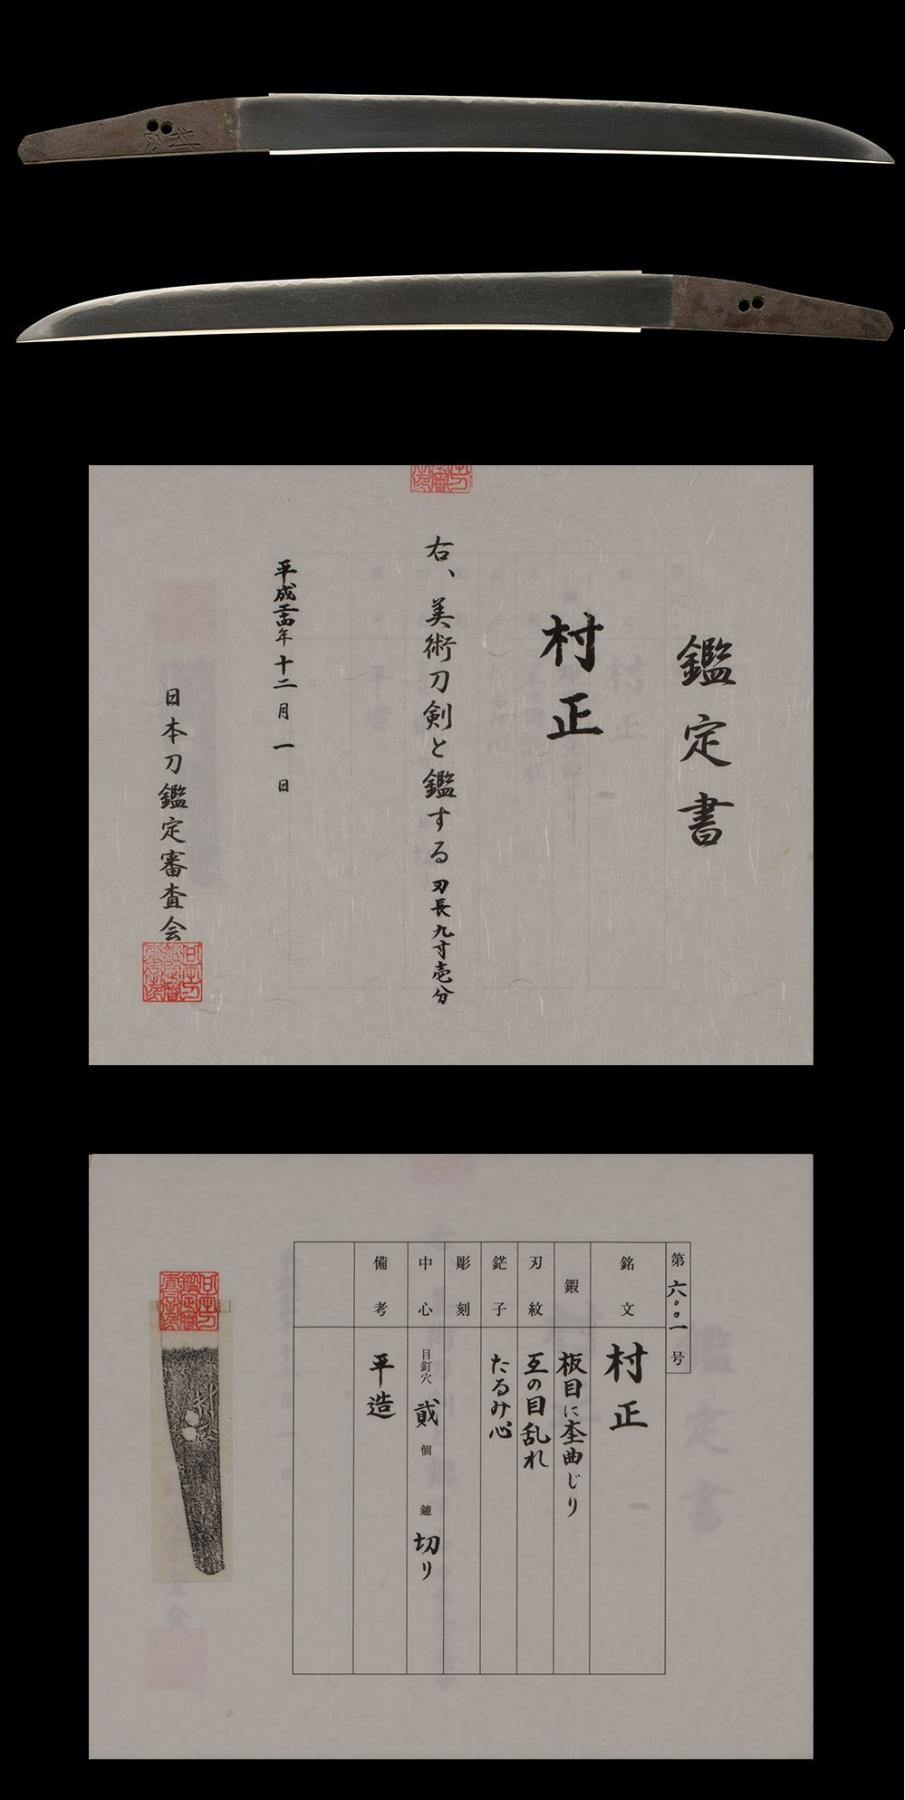 村正
鑑定書
村正
右、美術刀剣と鑑する 刃長九寸壱分
平成二十四年十二月一日
日本刀鑑定審査会
第六〇〇一号
銘文 村正
鍜 板目に杢曲じり
刃紋 互の目乱れ
鋩子 たるみ心
彫刻
中心 目釘穴 貮個 鑢 切り
備考 平造